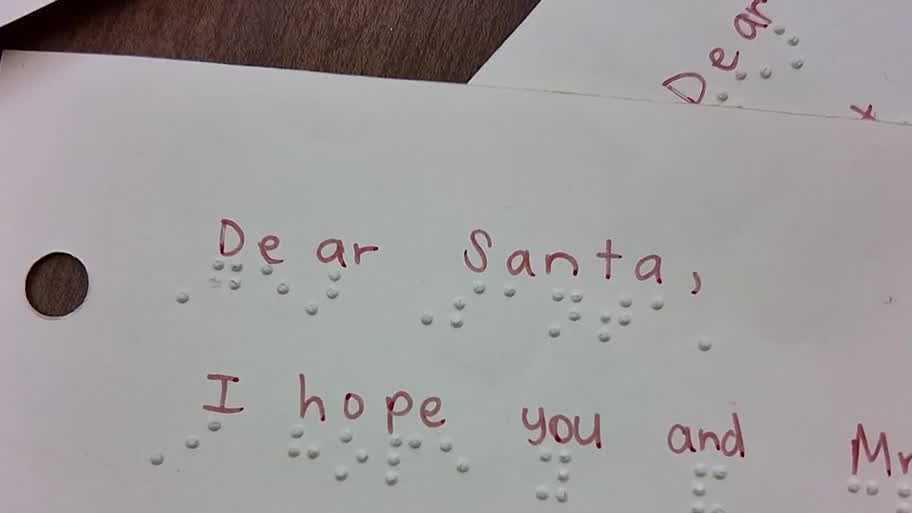 Dear
Dear Santa,
I hope you and Mr